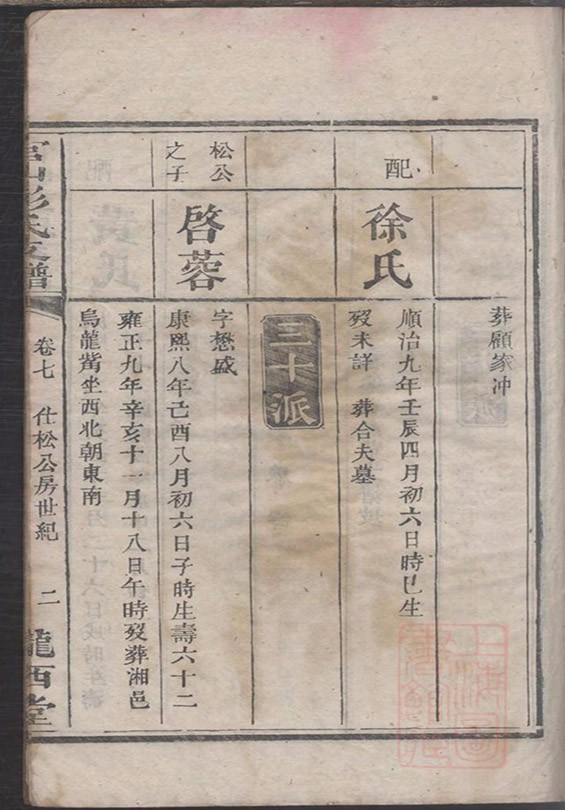 葬顧家冲
配
徐氏
順治九年壬辰四月初六日時巳生
歿未詳 葬合夫墓
三十派
松公
之子
啓蓉
字懋盛
康熙八年己酉八月初六日子時生壽六十二
雍正九年辛亥十一月十八日午時歿葬湘邑
烏龍觜坐西北朝東南
彭氏支譜
卷七 仕松公房世紀 二
隴西堂